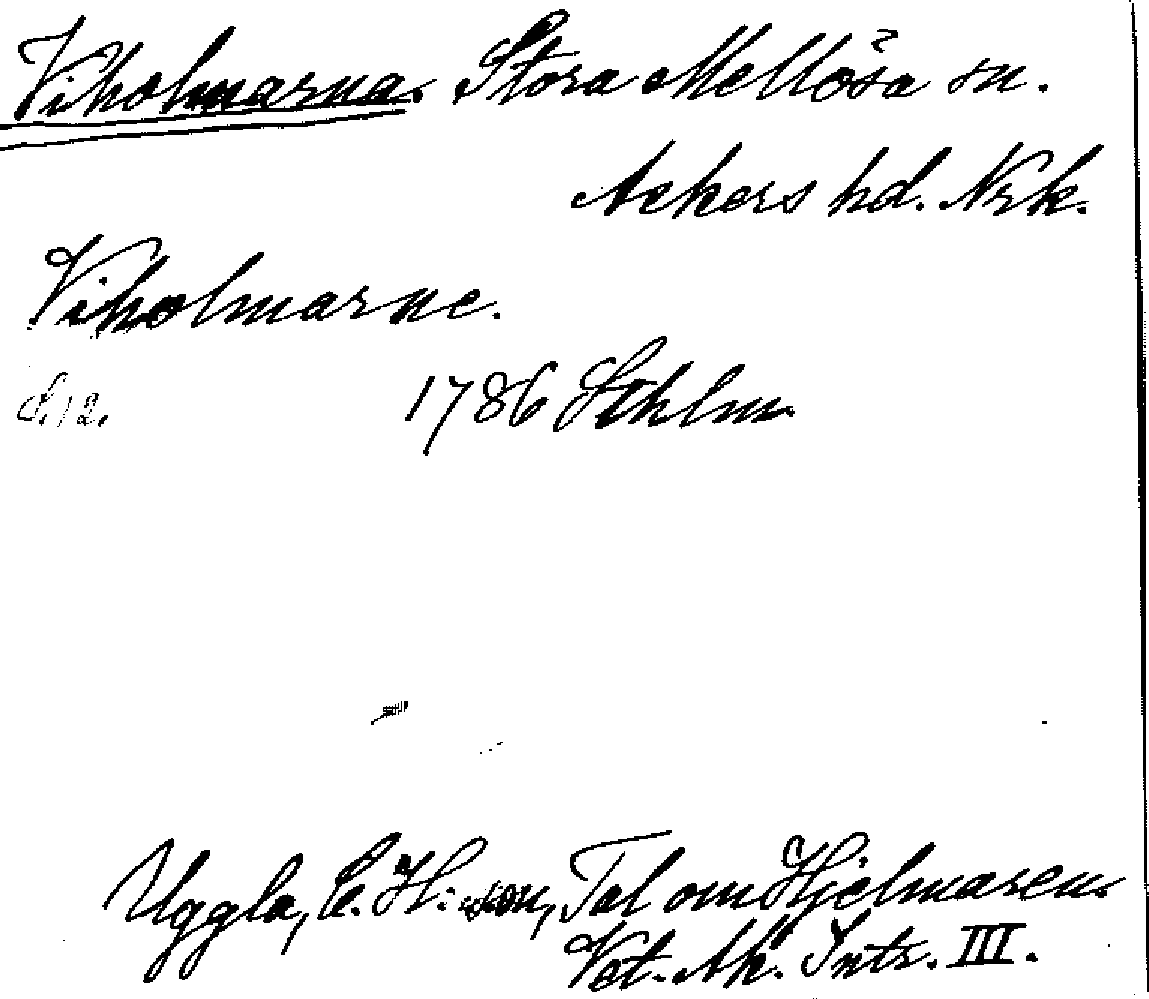 Viholmarna. Stora Mellösa sn.
Askers hd. Nrk.
Viholmarne.
S. 12. 1786 Sthlm.
Uggla, C. H:son, Tal om Hjelmaren.
Vet. Ak. Intr. III.